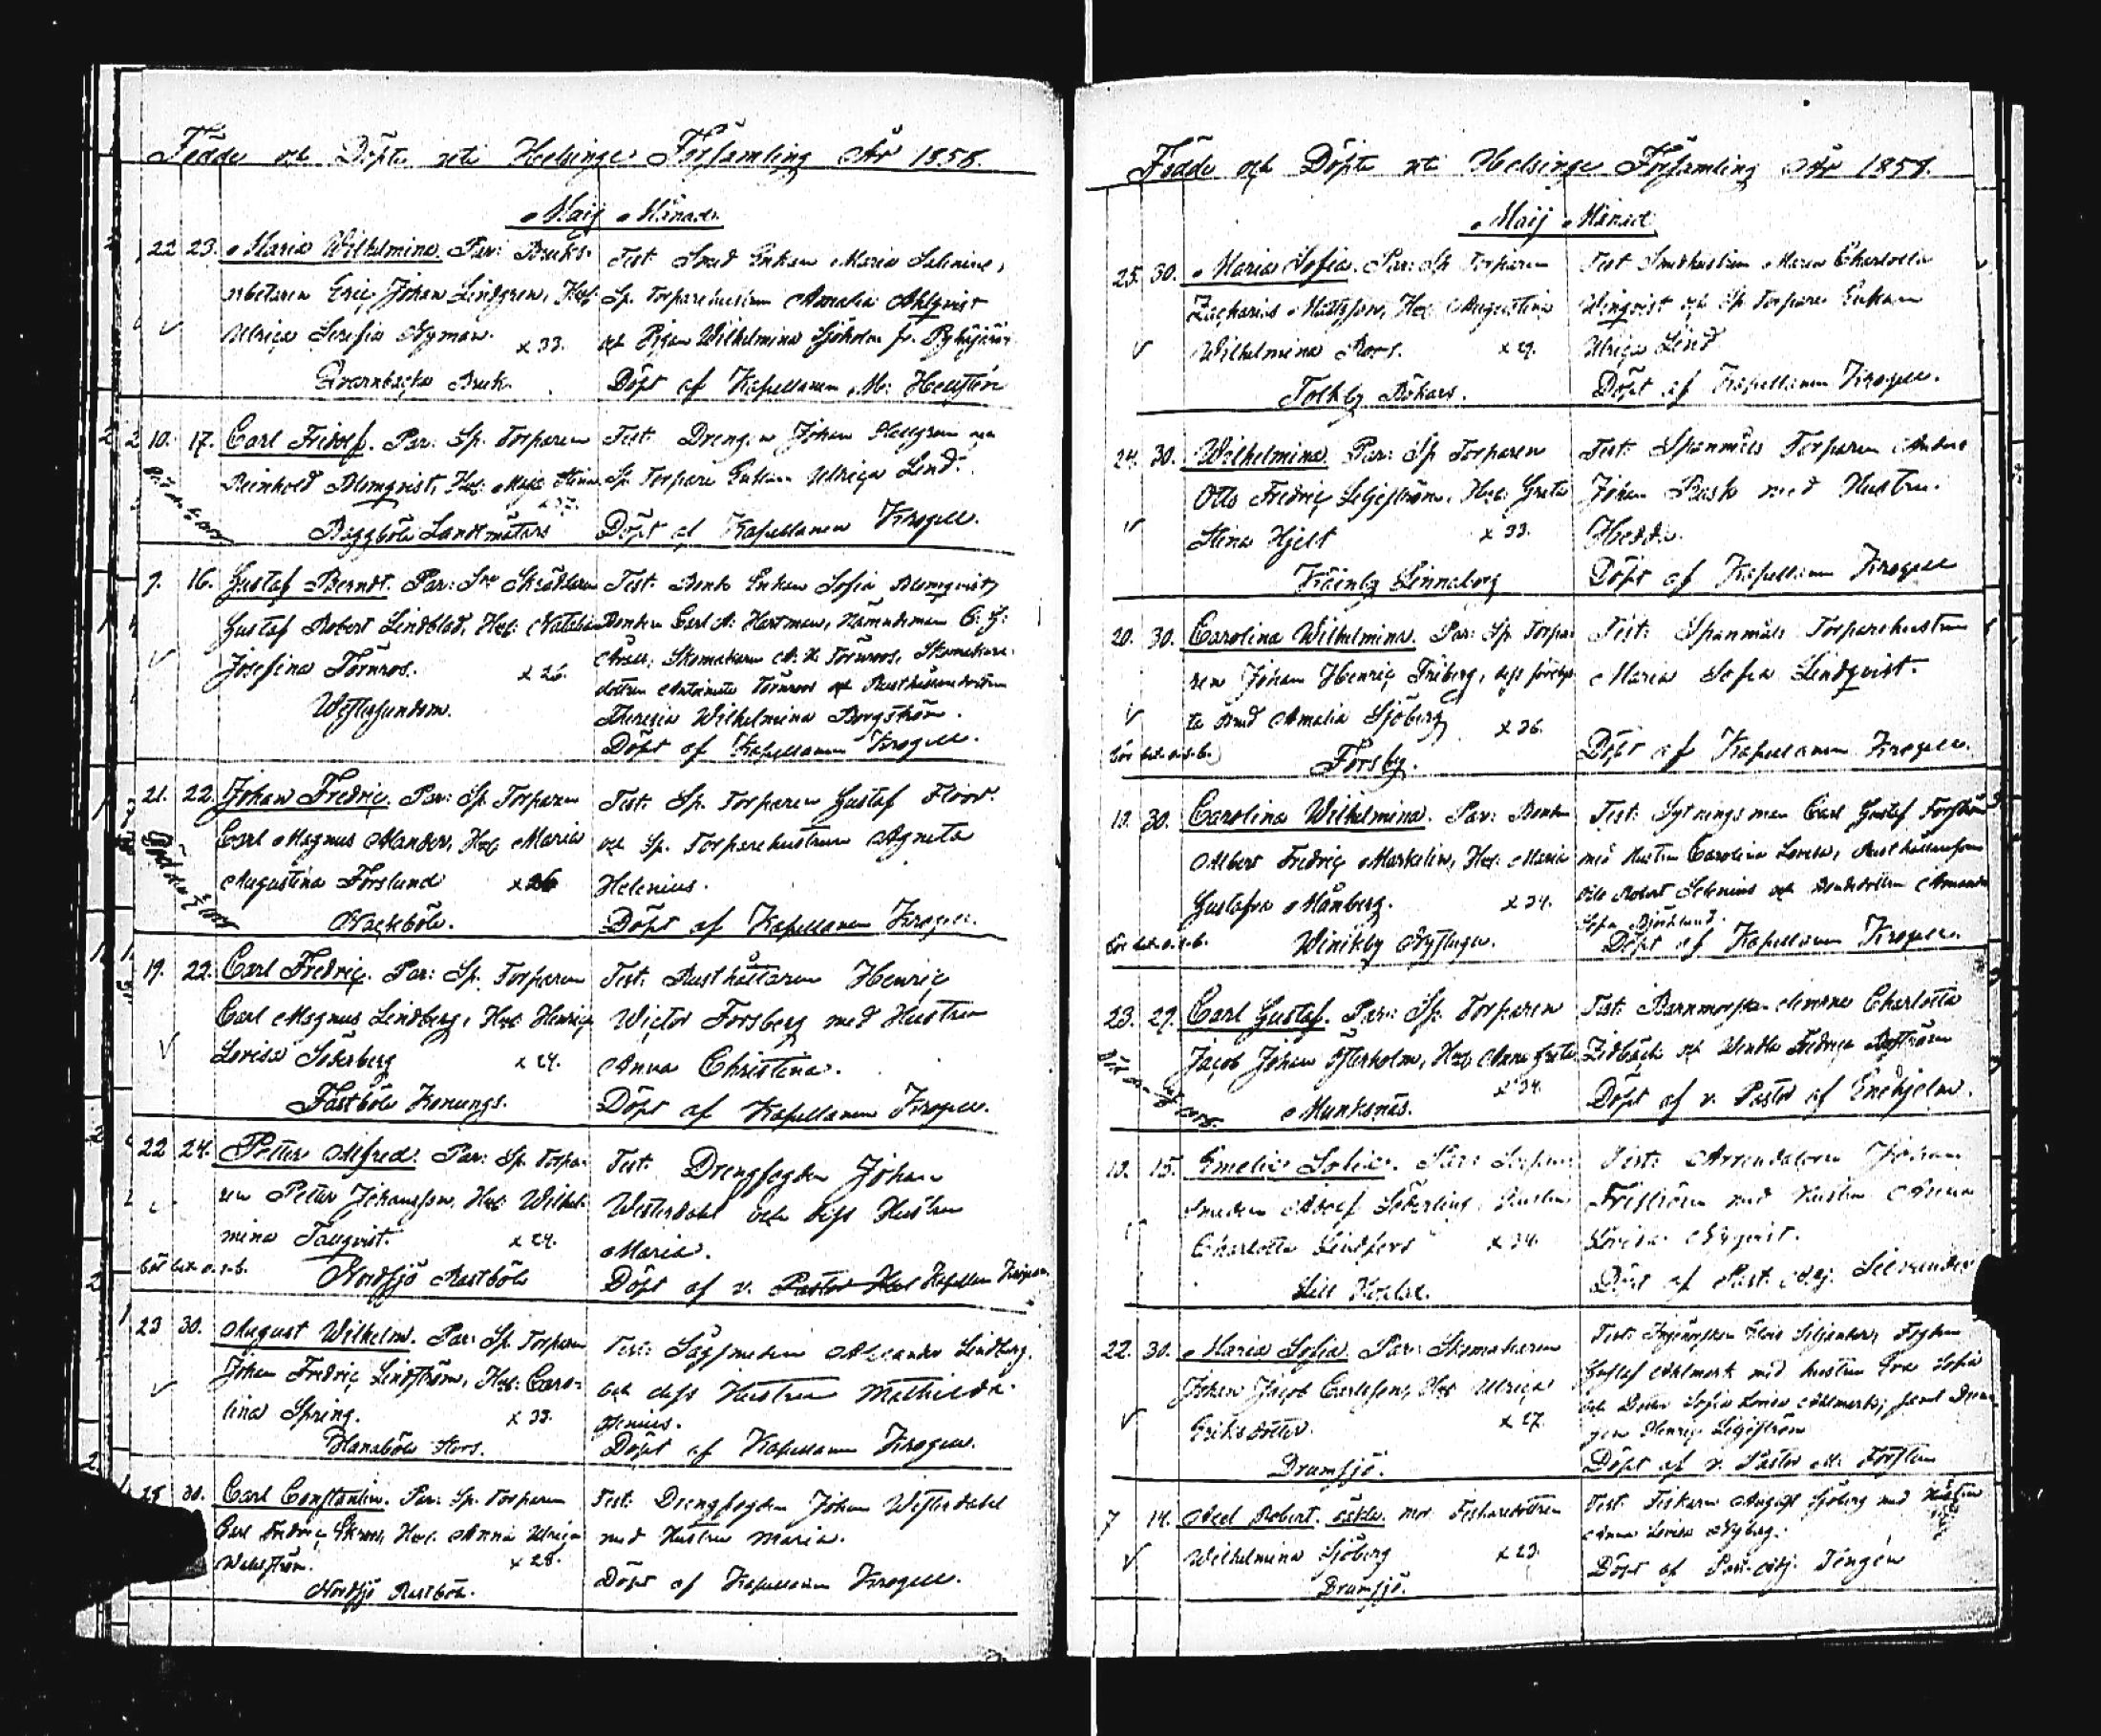 Födde och Döpte uti Helsinge Församling År 1858.
Maij Månad.
22 23. Maria Wilhelmina. Par: Bruks-
arbetaren Eric Johan Lindgren, Hust:
Ulrica Serafia Nyman. x 33.
Qvarnbacka Bruk.
Test: Smed Enkan Maria Salenius,
Sp. Torparehustrun Amalia Ahlqvist
och Pigan Wilhelmina Sjöholm fr.
Döpt af Kapellanen M:
10. 17. Carl Fridolf. Par: Sp. Torparen
Reinhold Blomqvist, Hust: Maja Stina
x 37.
Baggböle Landtmäters
Test: Drengen Johan Hellgren och
Sp. Torpare Enkan Ulrica Lind.
Döpt af Kapellanen Krogell.
9. 16. Gustaf Berndt. Par: Skräddaren
Gustaf Robert Lindblad, Hust: Natalia
Josefina Törnros. x 26.
Westersundom.
Test: Bonde Enkan Sofia Blomqvist,
Bonden Carl A: Hartman, Nämndeman C. G.
Skomakaren A. H. Törnroos, Skomakare-
dottren Antoinette Törnroos och Rusthållaredottren
Theresia Wilhelmina Borgström.
Döpt af Kapellanen Krogell.
21. 22. Johan Fredric. Par: Sp. Torparen
Carl Magnus Mander, Hust: Maria
Augustina Forslund x 26
Nackböle.
Test: Sp. Torparen Gustaf Floor
och Sp. Torparehustrun Agneta
Helenius.
Döpt af Kapellanen Krogell.
19. 22. Carl Fredric. Par: Sp. Torparen
Carl Magnus Lindberg, Hust: Henrica
Lovisa Söderberg x 24.
Fastböle Konungs.
Test: Rusthållaren Henric
Wictor Forsberg med Hustru
Anna Christina.
Döpt af Kapellanen Krogell.
22 24. Petter Alfred. Par: Sp. Torpa-
ren Petter Johansson, Hust: Wilhel-
mina Tallqvist. x 24.
Nordsjö Rastböle
Test: Drengfogden Johan
Westerdahl och dess Hustru
Maria.
Döpt af v. Pastor Kapellan Krogell
23 30. August Wilhelm. Par: Sp. Torparen
Johan Fredric Lindström, Hust: Caro-
lina Spring. x 33.
Hanaböle Stors.
Test: Sågsmeden Alexander Lindberg,
och dess Hustru Mathilda
Döpt af Kapellanen Krogell.
25 30. Carl Constantin. Par: Sp. Torparen
Carl Fredric Hust: Anna Ulrica
Wahlström. x 28.
Nordsjö Rastböle.
Test: Drengfogden Johan Westerdahl
med Hustru Maria.
Döpt af Kapellanen Krogell.
Födde och Döpte uti Helsinge Församling År 1858.
Maij Månad
25. 30. Maria Sofia. Par: Sp Torparen
Zacharias Mattsson, Hust: Augustina
Wilhelmina Roos. x 29.
Tolkby Bökars.
Test: Smedhustrun Maria Charlotta
Winqvist och Sp Torpare Enkan
Ulrica Lind
Döpt af Kapellanen Krogell.
24. 30. Wilhelmina. Par: Sp Torparen
Otto Fredric Segerström, Hust: Greta
Stina Hjelt x 33.
Kåinby Linnaborg
Test: Spanmåls Torparen Anders
Johan Rask med Hustru
Hedda.
Döpt af Kapellanen Krogell
20. 30. Carolina Wilhelmina. Par: Sp. Torpa-
ren Johan Henric Friberg, dess förlof-
te Brud Amalia Sjöberg x 26.
Forsby.
Test: Spanmåls Torparehustrun
Maria Sofia Lindqvist.
Döpt af Kapellanen Krogell.
19. 30. Carolina Wilhelmina. Par: Bonden
Albert Fredric Markelin, Hust: Maria
Gustafva Månberg. x 24.
Winikby Nystuga.
Test: Sytningsman Carl Gustaf Forsström
med Hustru Carolina Lovisa, Rusthållareson
Otto Robert Selenius och Bondedottren Amanda
Sofia Björklund.
Döpt af Kapellanen Krogell.
23. 29. Carl Gustaf. Par: Sp. Torparen
Jacob Johan Österholm, Hust: Anna Greta
x 34.
Munksnäs.
Test: Barnmorskan Charlotta
Zidbäck och Wendla Fredrica
Döpt af v. Pastor af Enehjelm.
13. 15. Emelie Sofia. Par:
Smeden Adolf Söderling, Hustru
Charlotta Lindfors x 34.
Lill Hoplax.
Test: Arrendatoren Johan
Friström med Hustru Anna
Lovisa Nyqvist.
Döpt af Past. Adj.
22. 30. Maria Sofia. Par: Skomakaren
Johan Jacob Carlsson, Hust: Ulrica
Eriksdotter. x 27.
Drumsjö.
Gustaf Ahlmark med hustru Eva Sofia
och Dotter Sofia Lovisa Ahlmark, samt Dren-
gen Henric Segerström
Döpt af v. Pastor M: Forsten
7 14. Axel Robert. oäkta. mod. Fiskaredottren
Wilhelmina Sjöberg x 23.
Drumsjö.
Test: Fiskaren August Sjöberg med Hustru
Anna Lovisa Nyberg.
Döpt af Past. Adj. Tengén